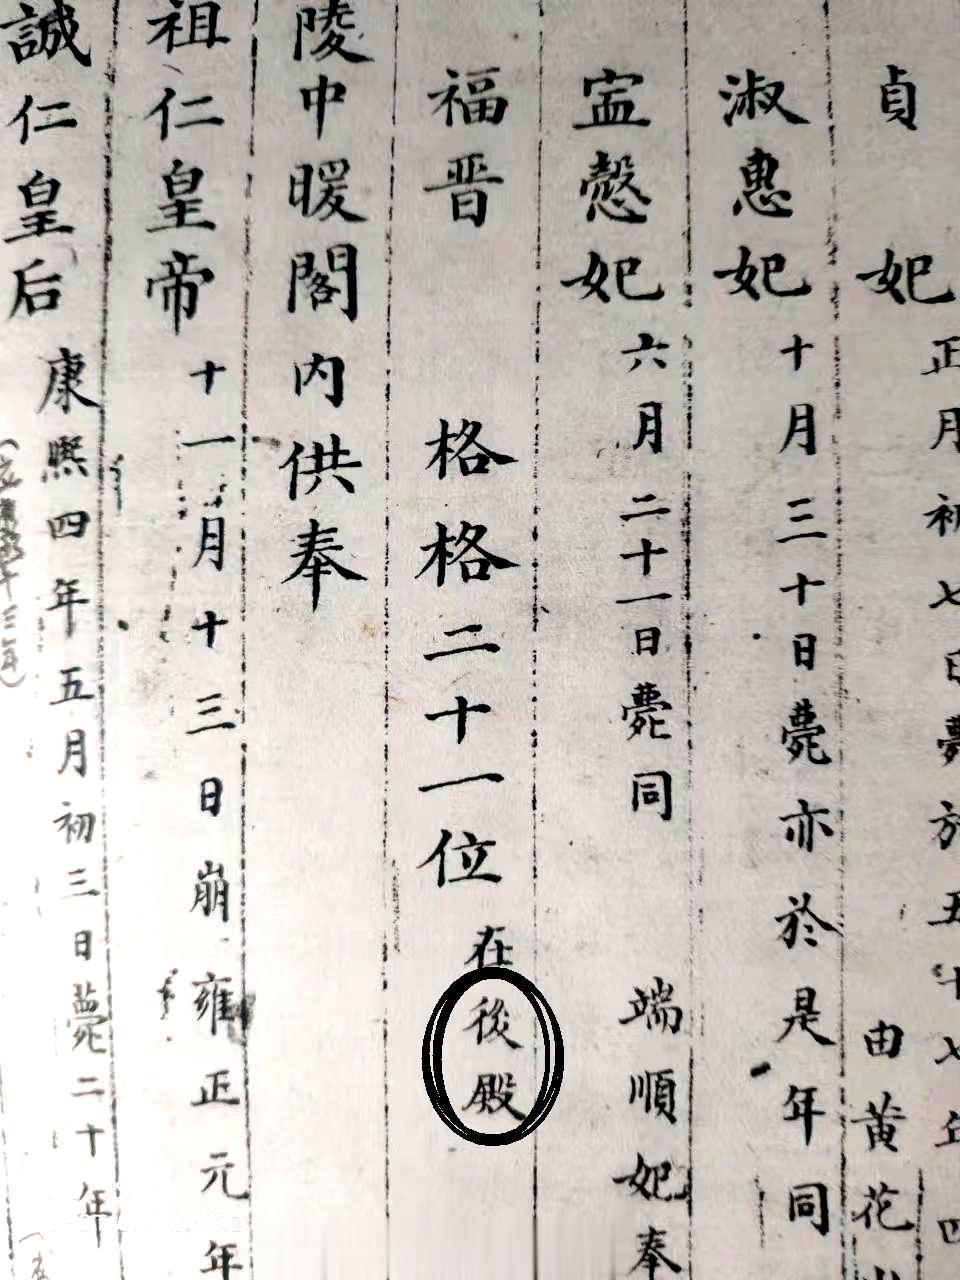 貞妃正月初七日薨於五十七年四
由黃花山
淑惠妃十月三十日薨亦於是年同
寍慤妃六月二十一日薨同端順妃奉
福晋格格二十一位在後殿
陵中暖閣内供奉
祖仁皇帝十一月十三日崩雍正元年
誠仁皇后康熙四年五月初三日薨二十年